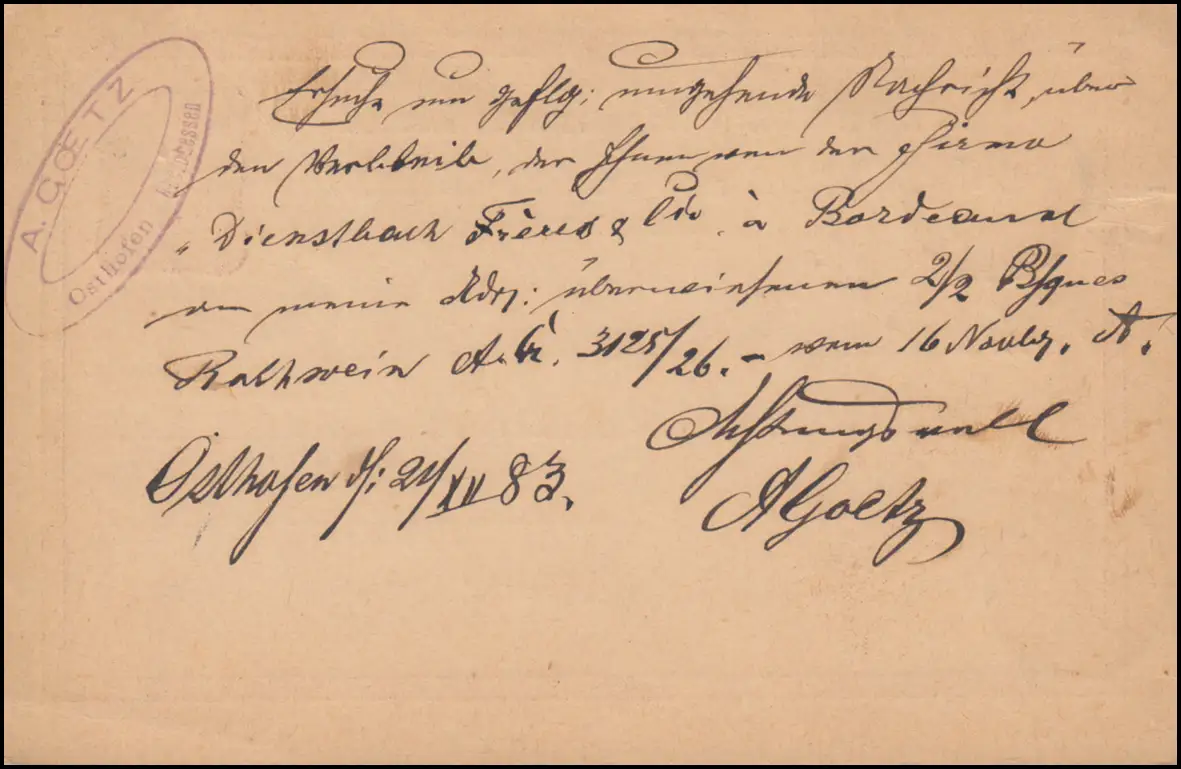 A. GOETZ
Osthofen Rh. Hessen
Ersuche um geflg: umgehende Nachricht, über
den Verbleib, der Ihnen von der Firma
„Dienstbach Frères & Cie. à Bordeaux
an meine Adr: überwiesenen 2/2 Bsques
Rothwein A.G. 3125/26. – vom 16 Novbr.
Achtungsvoll
Osthofen d/: 21/XII 83.
AGoetz